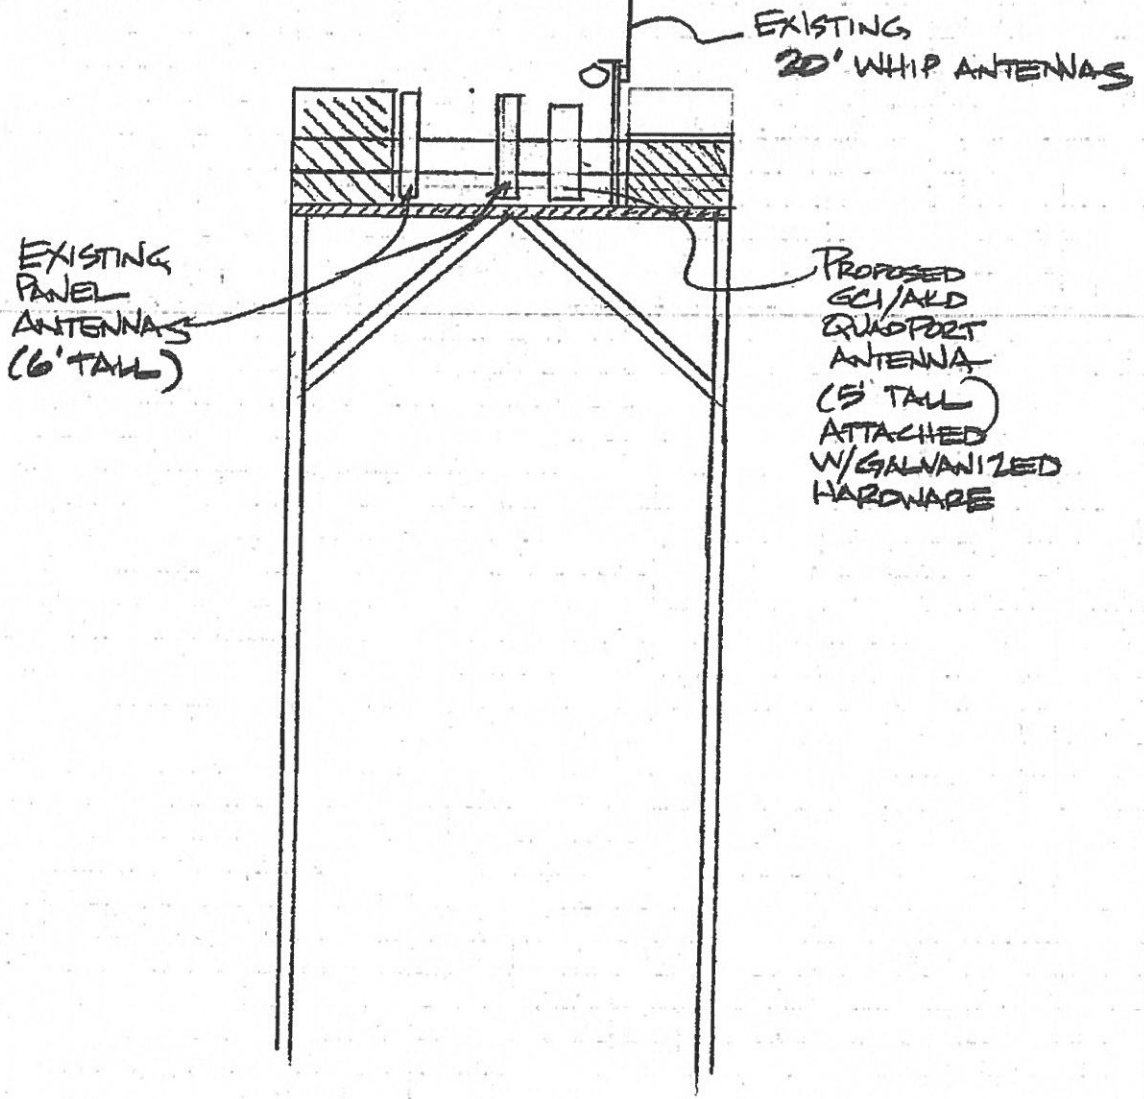 EXISTING
20' WHIP ANTENNAS
EXISTING
PANEL
ANTENNAS
(6' TALL)
PROPOSED
GCI/AKD
QUADPORT
ANTENNA
(5' TALL)
ATTACHED
W/GALVANIZED
HARDWARE